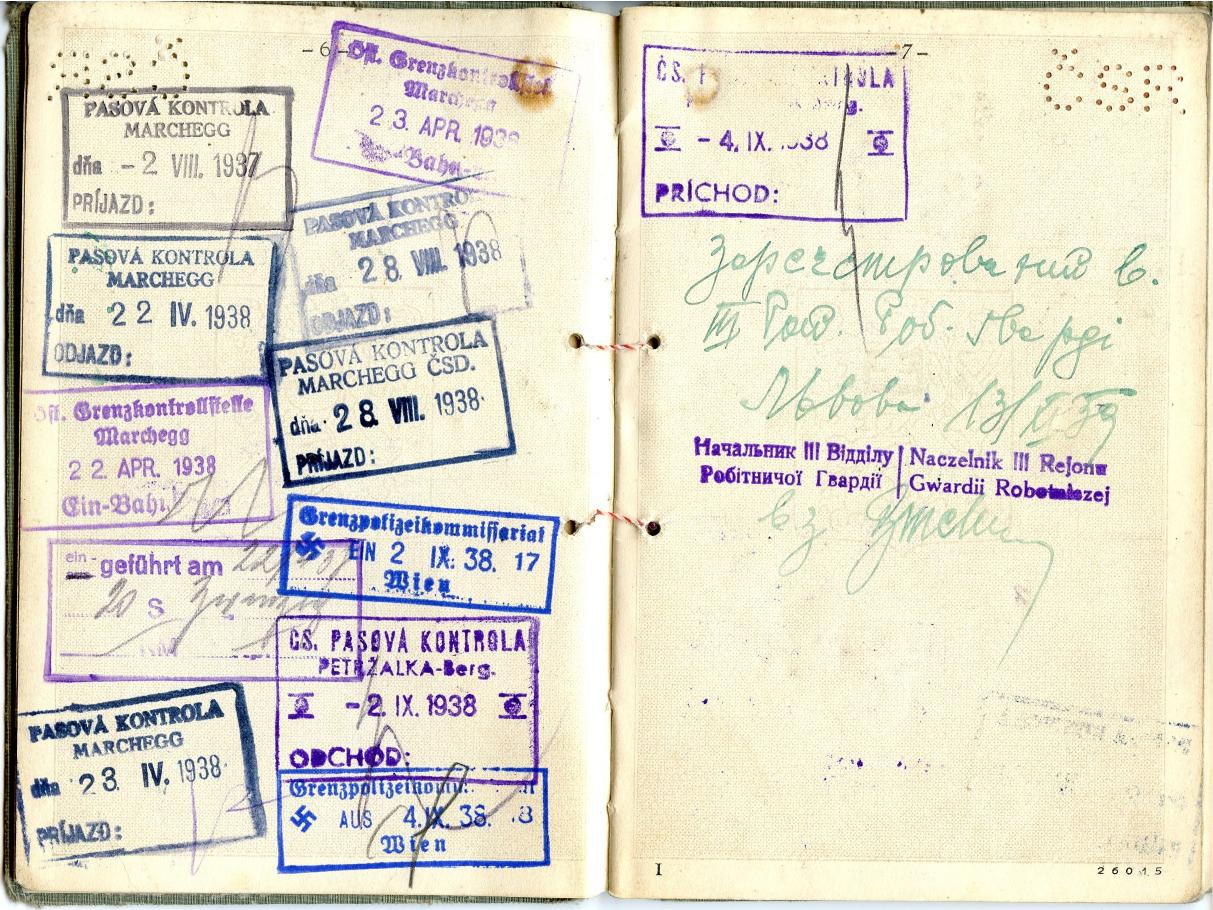 - 6 -
PASOVÁ KONTROLA
MARCHEGG
dňa - 2 VIII. 1937
PRÍJAZD:
Öst. Grenzkontrollstelle
Marchegg
23. APR. 1938
Bahn-
PASOVÁ KONTROLA
MARCHEGG
dňa 22 IV. 1938
ODJAZD:
PASOVÁ KONTRO
MARCHEGG
dňa 28. VIII. 1938
ODJAZD:
Öst. Grenzkontrollstelle
Marchegg
22. APR. 1938
Ein-Bahn
PASOVÁ KONTROLA
MARCHEGG ČSD.
dňa 28 VIII. 1938
PRÍJAZD:
Grenzpolizeikommissariat
EIN 2 IX. 38. 17
Wien
ein-
-geführt am
20 S
ČS. PASOVÁ KONTROLA
PETRŽALKA-Berg.
- 2. IX. 1938
ODCHOD:
PASOVÁ KONTROLA
MARCHEGG
dňa 23 IV. 1938
PRÍJAZD:
Grenzpolizeikomm
AUS 4. IX. 38. 8
Wien
- 7 -
ČSR
ČS. P KONTROLA
erg.
- 4. IX. 1938
PRÍCHOD:
Зареєстрований в.
III Рай. Роб. Гвардії
Львова 13/X 39
Начальник III Відділу | Naczelnik III Rejonu
Робітничої Гвардії | Gwardii Robotniczej
I
26015